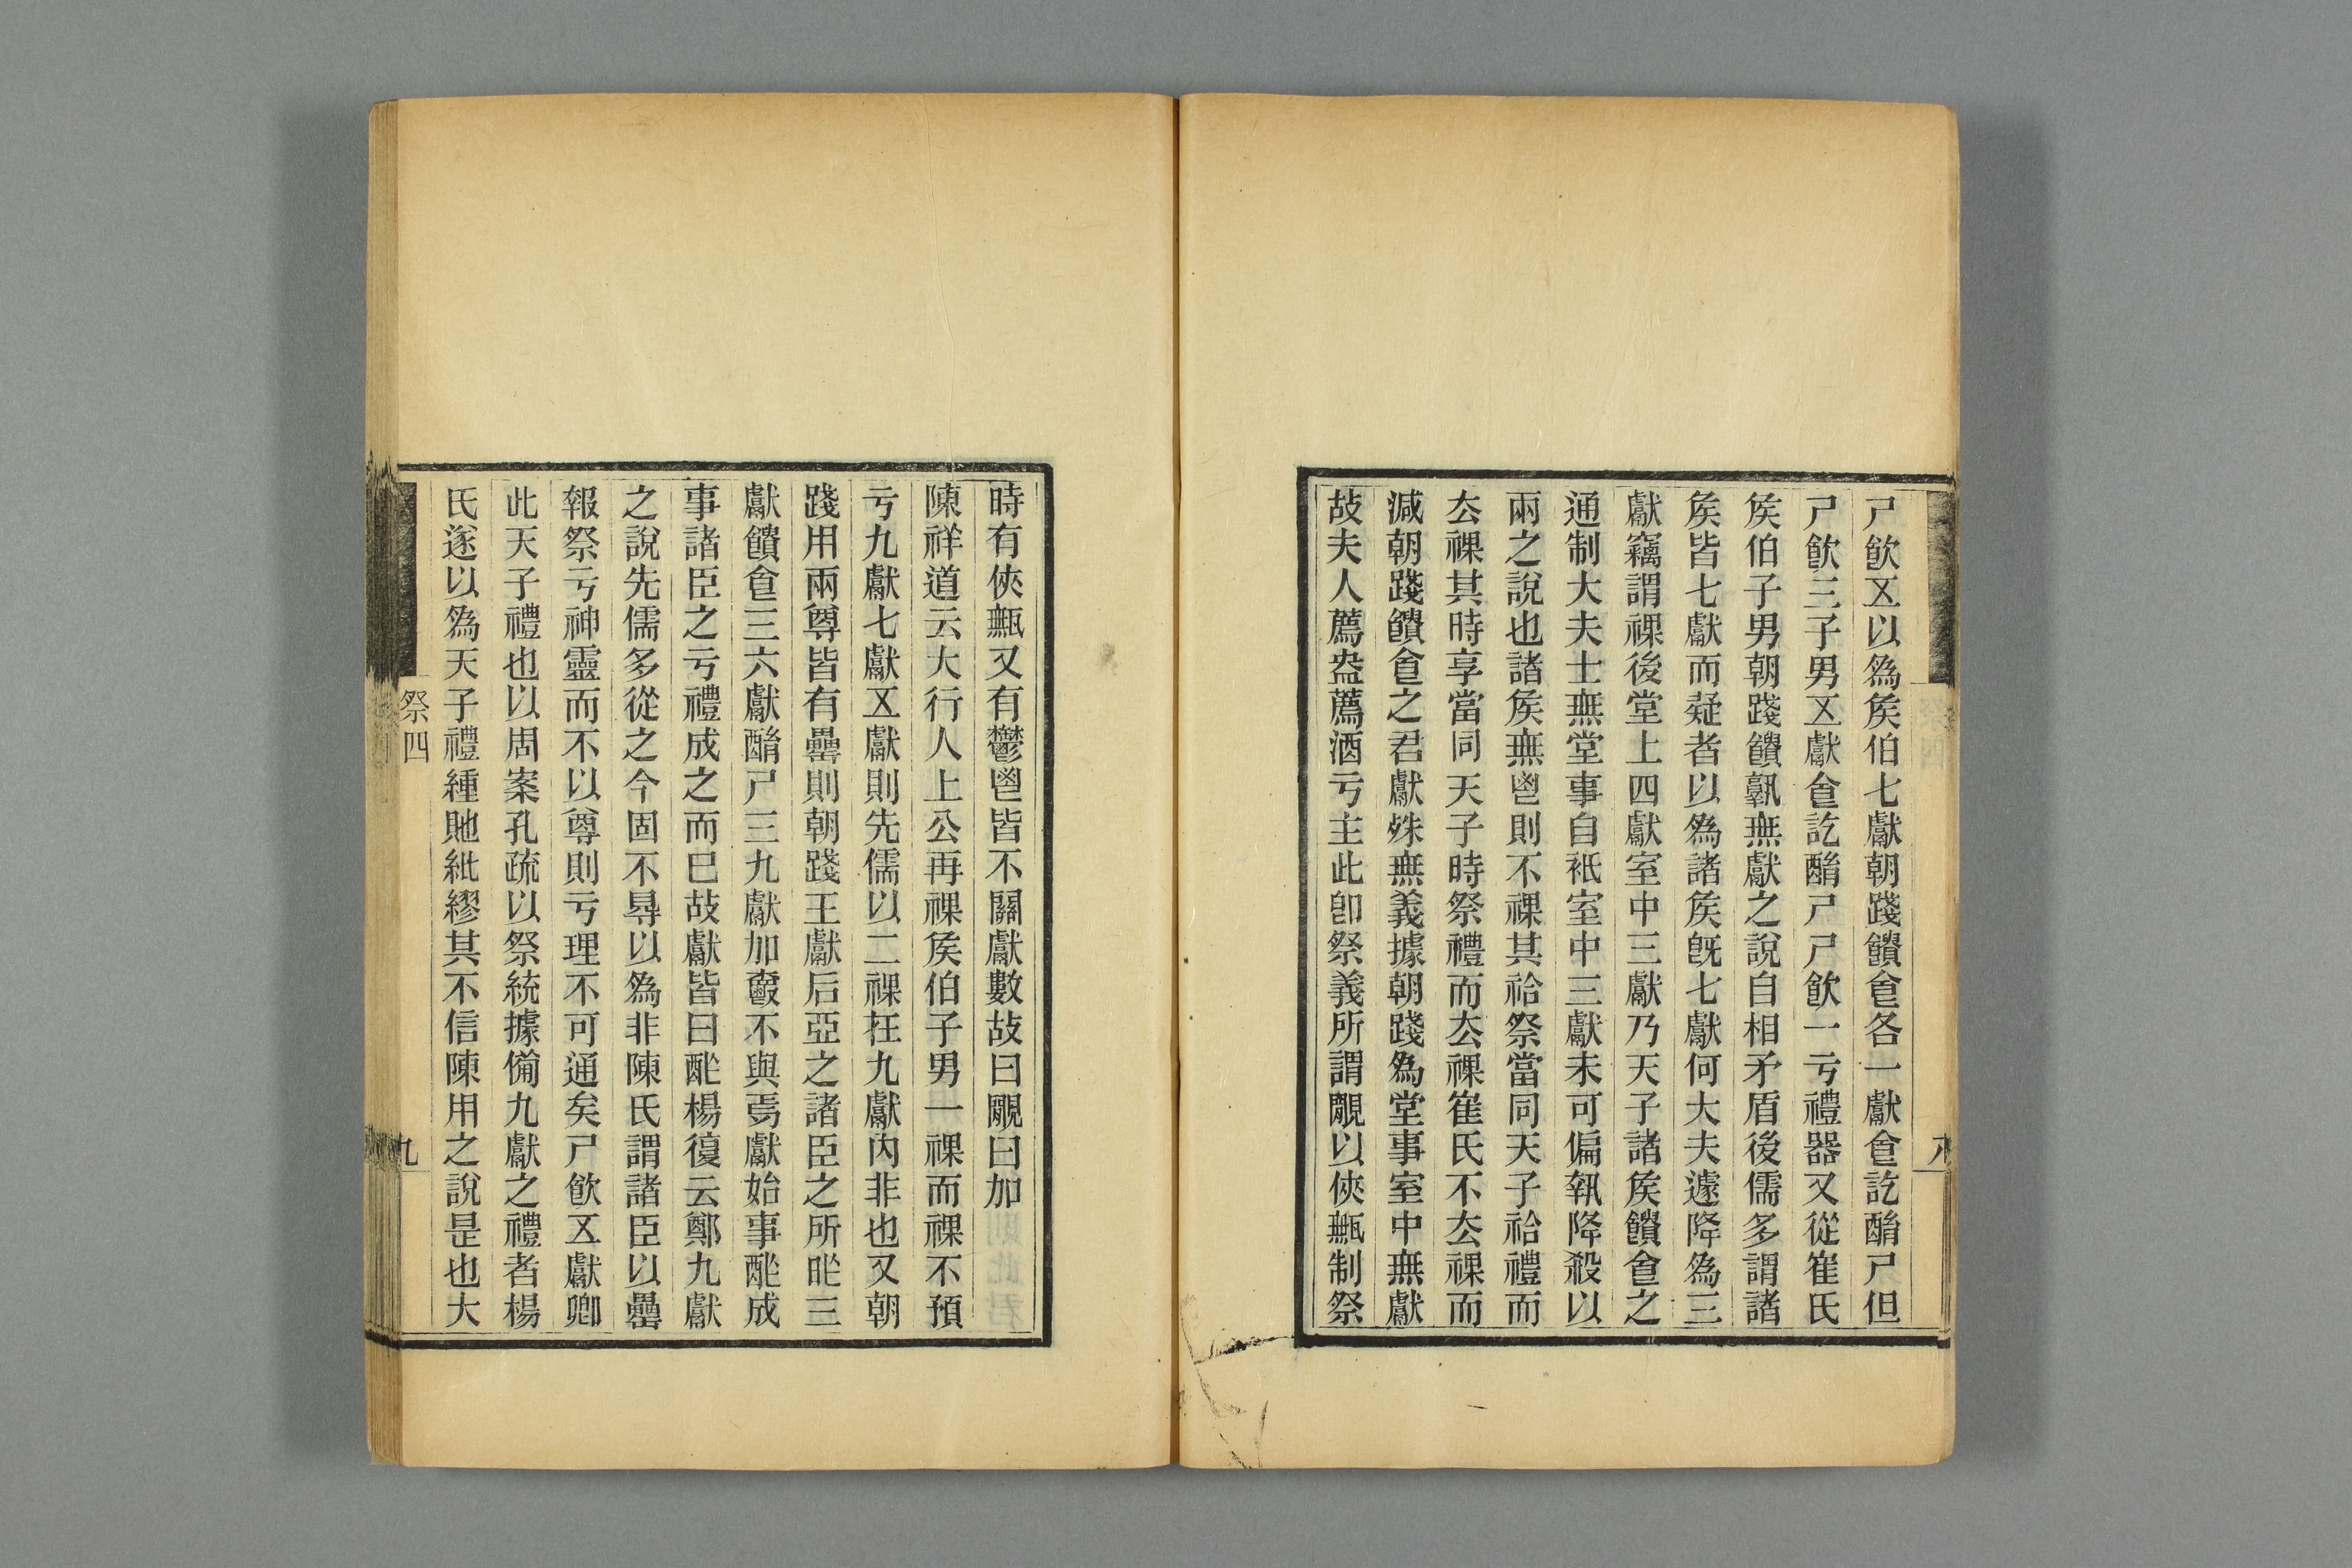 尸飮五以爲矦伯七獻朝踐饋𠊊各一獻𠊊訖酳尸但
尸飮三子男五獻𠊊訖酳尸尸飮一亏禮器又從崔氏
矦伯子男朝踐饋孰無獻之說自相矛盾後儒多謂諸
矦皆七獻而疑者以爲諸矦旣七獻何大夫遽降爲三
獻竊謂祼後堂上四獻室中三獻乃天子諸矦饋𠊊之
通制大夫士無堂事自祇室中三獻未可偏執降殺以
兩之說也諸矦無鬯則不祼其祫祭當同天子祫禮而
厺祼其時享當同天子時祭禮而厺祼崔氏不厺祼而
減朝踐饋𠊊之君獻殊無義據朝踐爲堂事室中無獻
故夫人薦盎薦酒亏主此卽祭義所謂覸以俠甒制祭
時有俠甒又有鬱鬯皆不關獻數故曰覸曰加
陳祥道云大行人上公再祼矦伯子男一祼而祼不預
亏九獻七獻五獻則先儒以二祼在九獻內非也又朝
踐用兩尊皆有罍則朝踐王獻后亞之諸臣之所昨三
獻饋𠊊三六獻酳尸三九獻加爵不與焉獻始事酢成
事諸臣之亏禮成之而已故獻皆曰酢楊復云鄭九獻
之說先儒多從之今固不得以爲非陳氏謂諸臣以罍
報祭亏神靈而不以尊則亏理不可通矣尸飮五獻卿
此天子禮也以周案孔疏以祭統據備九獻之禮者楊
氏遂以爲天子禮緟貤紕繆其不信陳用之說是也大
祭四
九
八